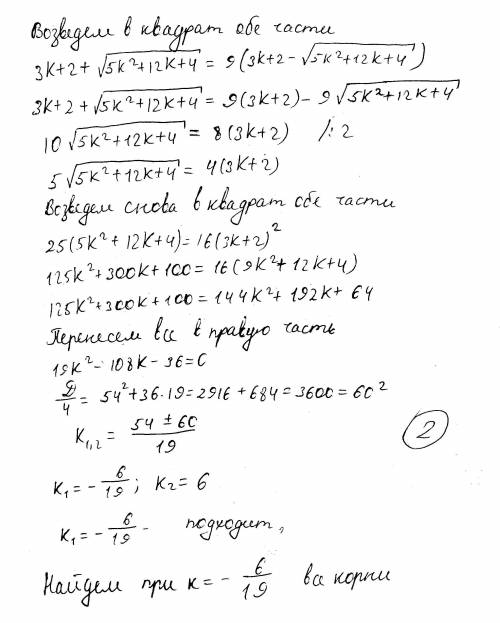 Возведем в квадрат обе части
3k+2+√(5k²+12k+4) = 9(3k+2-√(5k²+12k+4))
3k+2+√(5k²+12k+4) = 9(3k+2)-9√(5k²+12k+4)
10√(5k²+12k+4) = 8(3k+2) /:2
5√(5k²+12k+4) = 4(3k+2)
Возведем снова в квадрат обе части
25(5k²+12k+4)=16(3k+2)²
125k²+300k+100=16(9k²+12k+4)
125k²+300k+100=144k²+192k+64
Перенесем все в правую часть
19k²-108k-36=0
D/4=54²+36·19=2916+684=3600=60²
k₁,₂=(54±60)/19
2
k₁=-6/19; k₂=6
k₁=-6/19 - подходит,
Найдем при k=-6/19 все корни